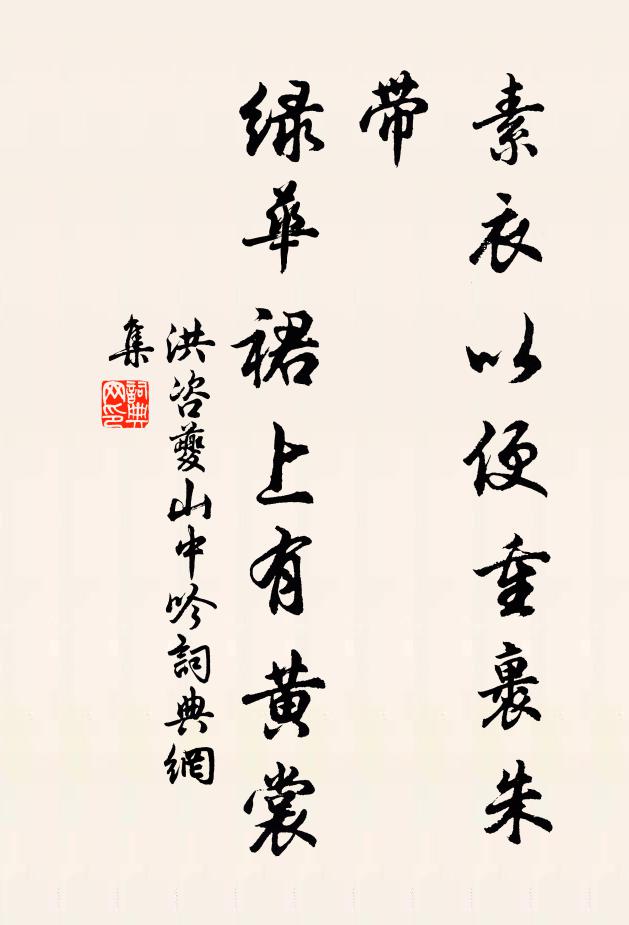 素衣以便重裹朱
带
綠華裙上有黄裳
洪咨夔山中吟詞典網
集
詞典
网印